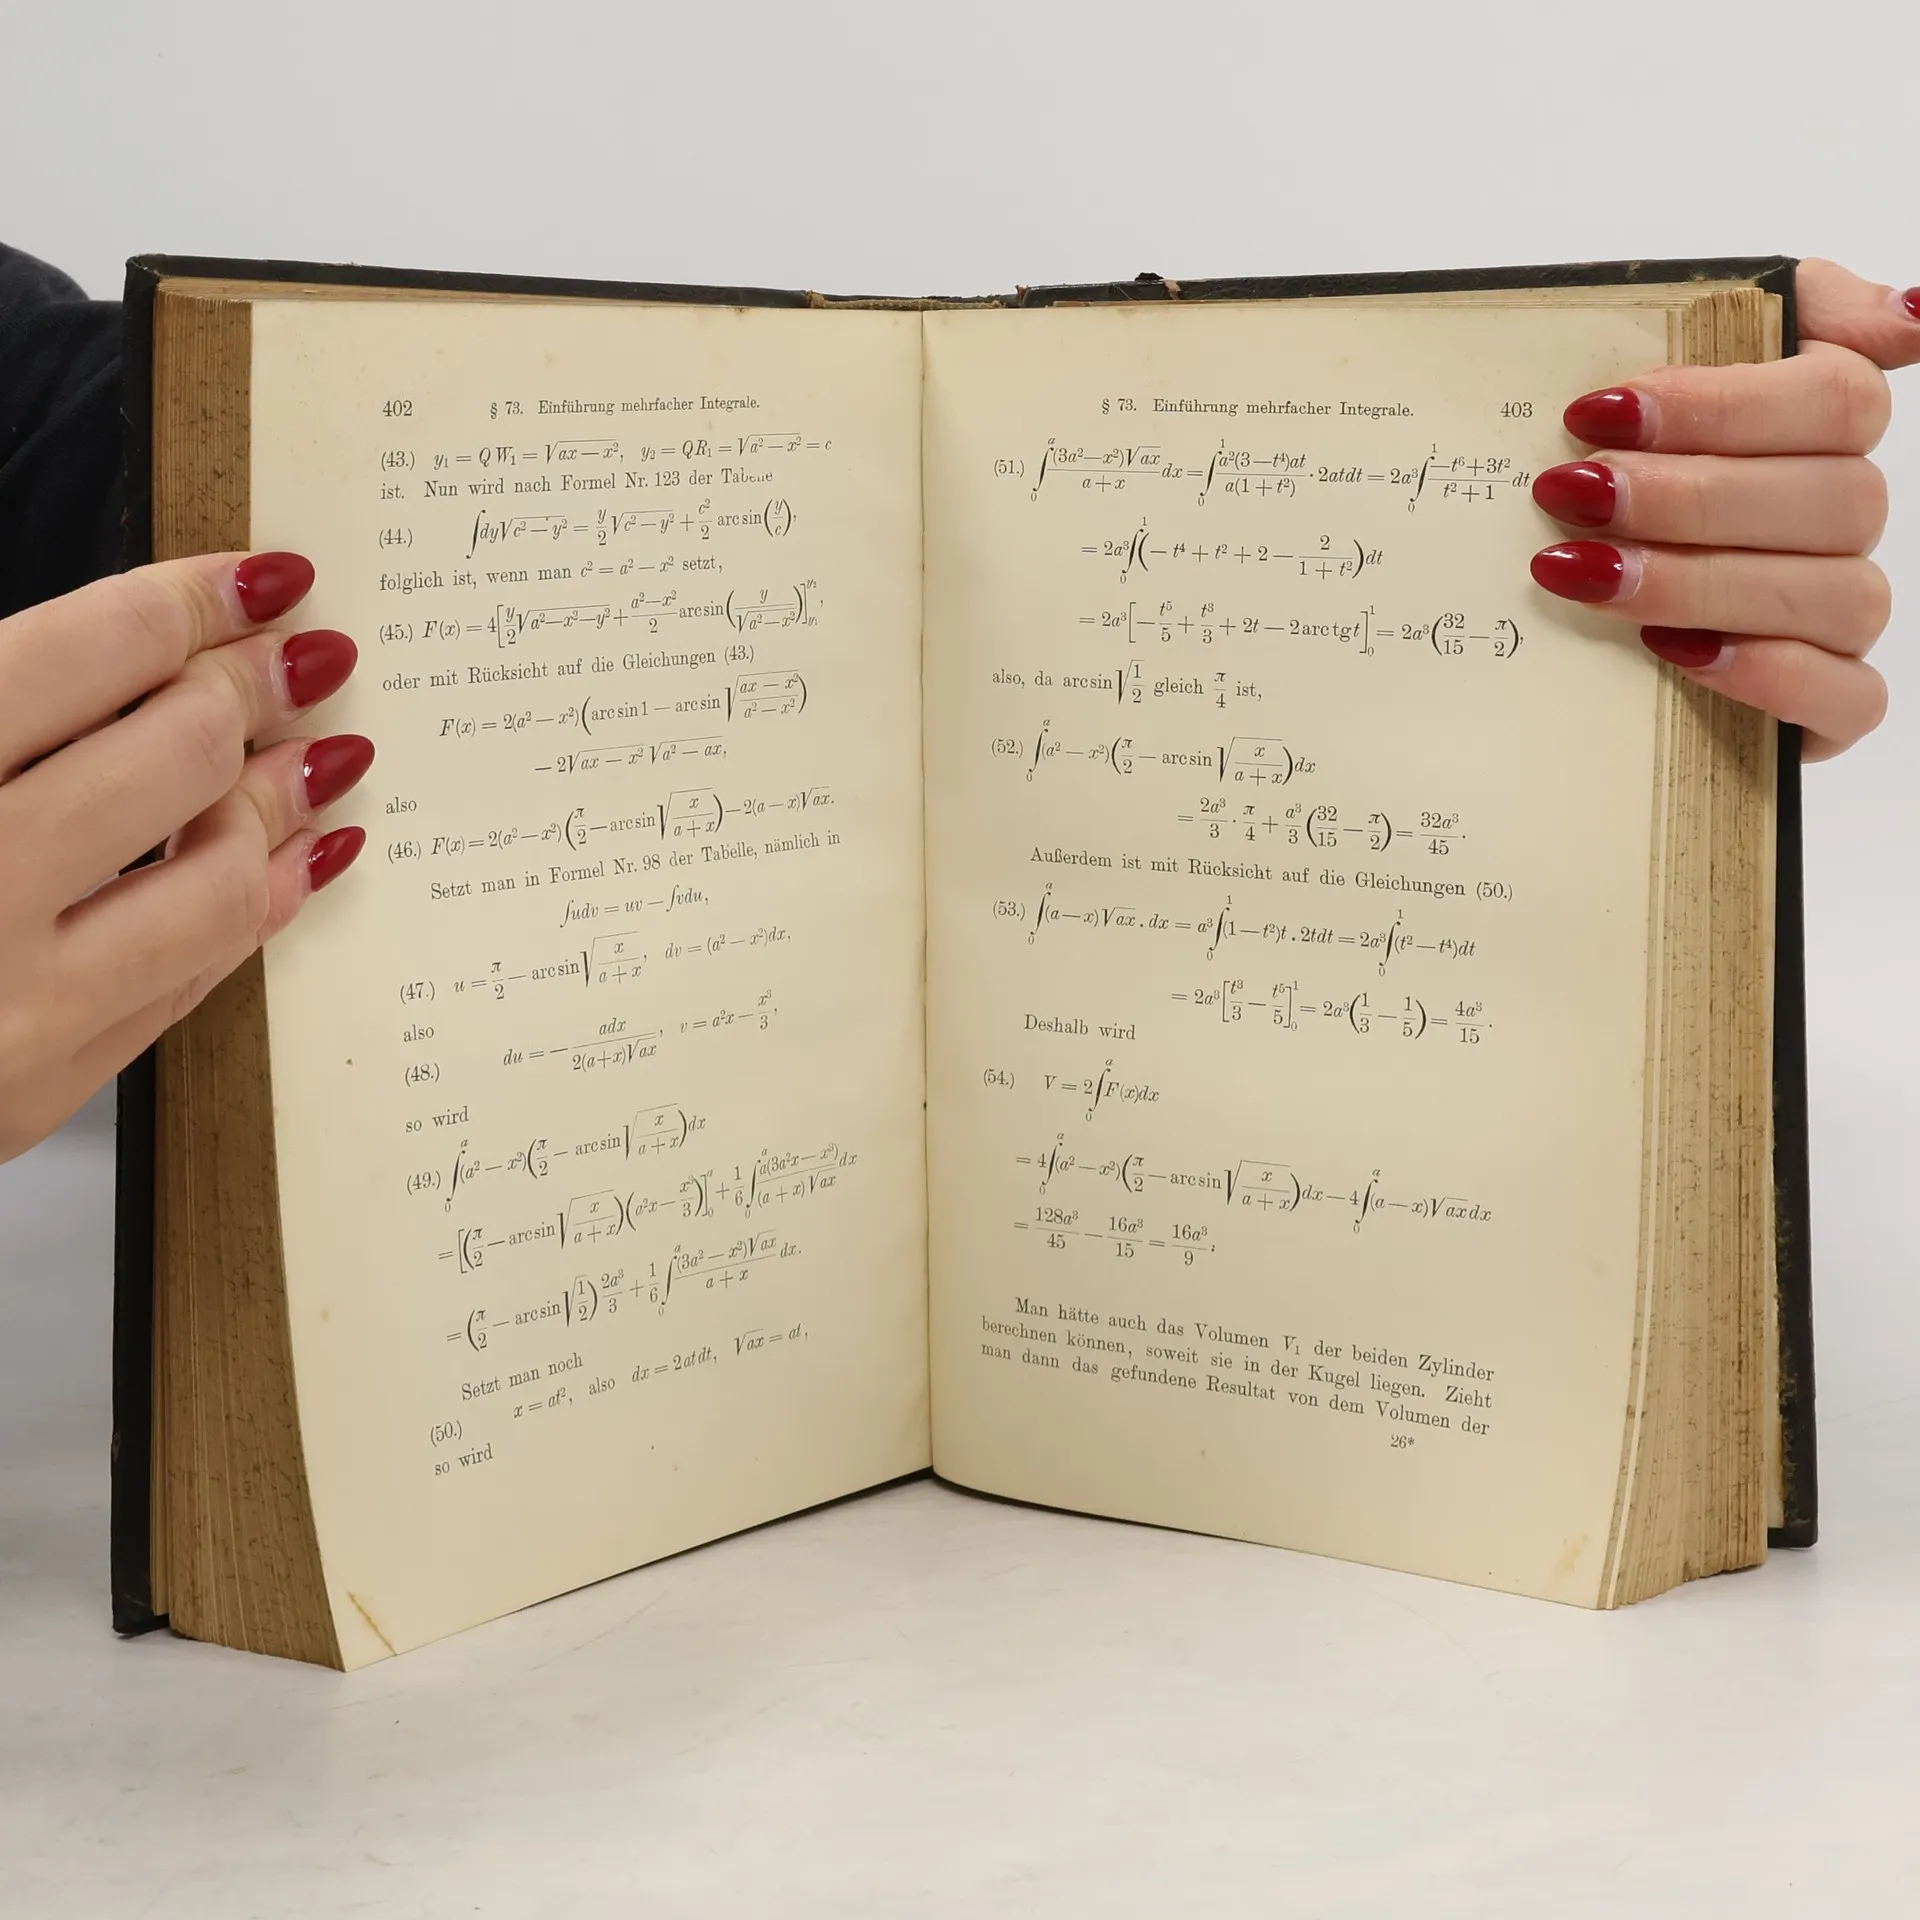 402 § 73. Einführung mehrfacher Integrale.
(43.) y₁ = QW₁ = √(ax − x²), y₂ = QR₁ = √(a² − x²) = c
ist. Nun wird nach Formel Nr. 123 der Tabelle
(44.) ∫dy√(c² − y²) = y/2 √(c² − y²) + c²/2 arc sin(y/c),
folglich ist, wenn man c² = a² − x² setzt,
(45.) F(x) = 4[y/2 √(a² − x² − y²) + (a² − x²)/2 arc sin(y/√(a² − x²))]_{y₁}^{y₂},
oder mit Rücksicht auf die Gleichungen (43.)
F(x) = 2(a² − x²)(arc sin 1 − arc sin √((ax − x²)/(a² − x²)))
− 2√(ax − x²) √(a² − ax),
also
(46.) F(x) = 2(a² − x²)(π/2 − arc sin √(x/(a + x))) − 2(a − x)√(ax).
Setzt man in Formel Nr. 98 der Tabelle, nämlich in
∫udv = uv − ∫vdu,
(47.) u = π/2 − arc sin √(x/(a + x)), dv = (a² − x²)dx,
also
(48.) du = − adx/(2(a + x)√(ax)), v = a²x − x³/3,
so wird
(49.) ∫₀ᵃ(a² − x²)(π/2 − arc sin √(x/(a + x)))dx
= [(π/2 − arc sin √(x/(a + x)))(a²x − x³/3)]₀ᵃ + 1/6 ∫₀ᵃ a(3a²x − x³)/((a + x)√(ax)) dx
= (π/2 − arc sin √(1/2)) 2a³/3 + 1/6 ∫₀ᵃ (3a² − x²)√(ax)/(a + x) dx.
Setzt man noch
(50.) x = at², also dx = 2atdt, √(ax) = at,
so wird
§ 73. Einführung mehrfacher Integrale. 403
(51.) ∫₀ᵃ (3a² − x²)√(ax)/(a + x) dx = ∫₀¹ a²(3 − t⁴)at/(a(1 + t²)) · 2atdt = 2a³∫₀¹ (−t⁶ + 3t²)/(t² + 1) dt
= 2a³∫₀¹(− t⁴ + t² + 2 − 2/(1 + t²))dt
= 2a³[− t⁵/5 + t³/3 + 2t − 2 arc tg t]₀¹ = 2a³(32/15 − π/2),
also, da arc sin √(1/2) gleich π/4 ist,
(52.) ∫₀ᵃ(a² − x²)(π/2 − arc sin √(x/(a + x)))dx
= 2a³/3 · π/4 + a³/3 (32/15 − π/2) = 32a³/45.
Außerdem ist mit Rücksicht auf die Gleichungen (50.)
(53.) ∫₀ᵃ(a − x)√(ax) . dx = a³∫₀¹(1 − t²)t . 2tdt = 2a³∫₀¹(t² − t⁴)dt
= 2a³[t³/3 − t⁵/5]₀¹ = 2a³(1/3 − 1/5) = 4a³/15.
Deshalb wird
(54.) V = 2∫₀ᵃF(x)dx
= 4∫₀ᵃ(a² − x²)(π/2 − arc sin √(x/(a + x)))dx − 4∫₀ᵃ(a − x)√(ax) dx
= 128a³/45 − 16a³/15 = 16a³/9;
Man hätte auch das Volumen V₁ der beiden Zylinder
berechnen können, soweit sie in der Kugel liegen. Zieht
man dann das gefundene Resultat von dem Volumen der
26*